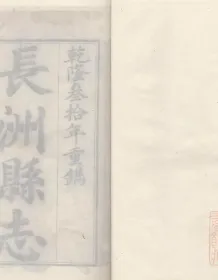 乾隆叁拾年重鐫
長洲縣志